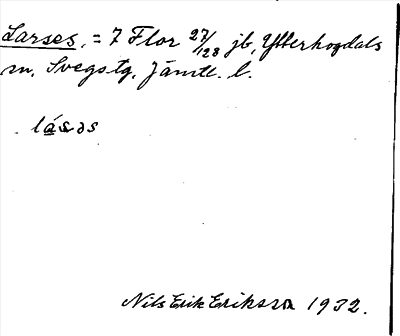 Larses, = 7 Flor 27/128 jb, Ytterhogdals
sn, Svegs tg, Jämtl. l.
lásəs
Nils Erik Eriksson 1932.